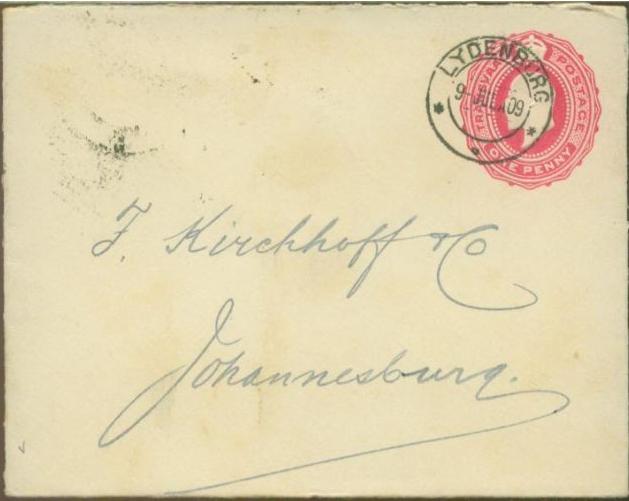 LYDENBURG
9-JUL.09
TRANSVAAL POSTAGE
ONE PENNY
F. Kirchhoff & Co
Johannesburg.